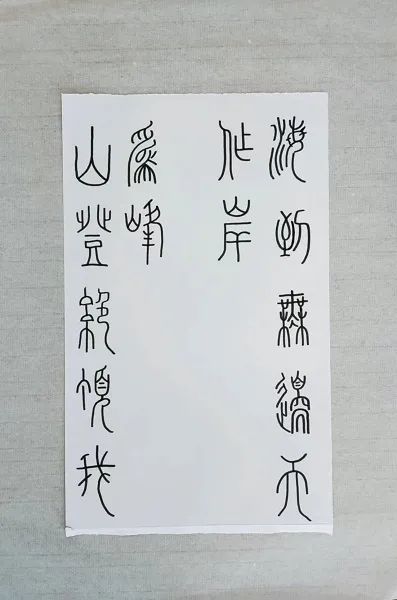 海到無邊天
作岸
山登絕頂我
為峰